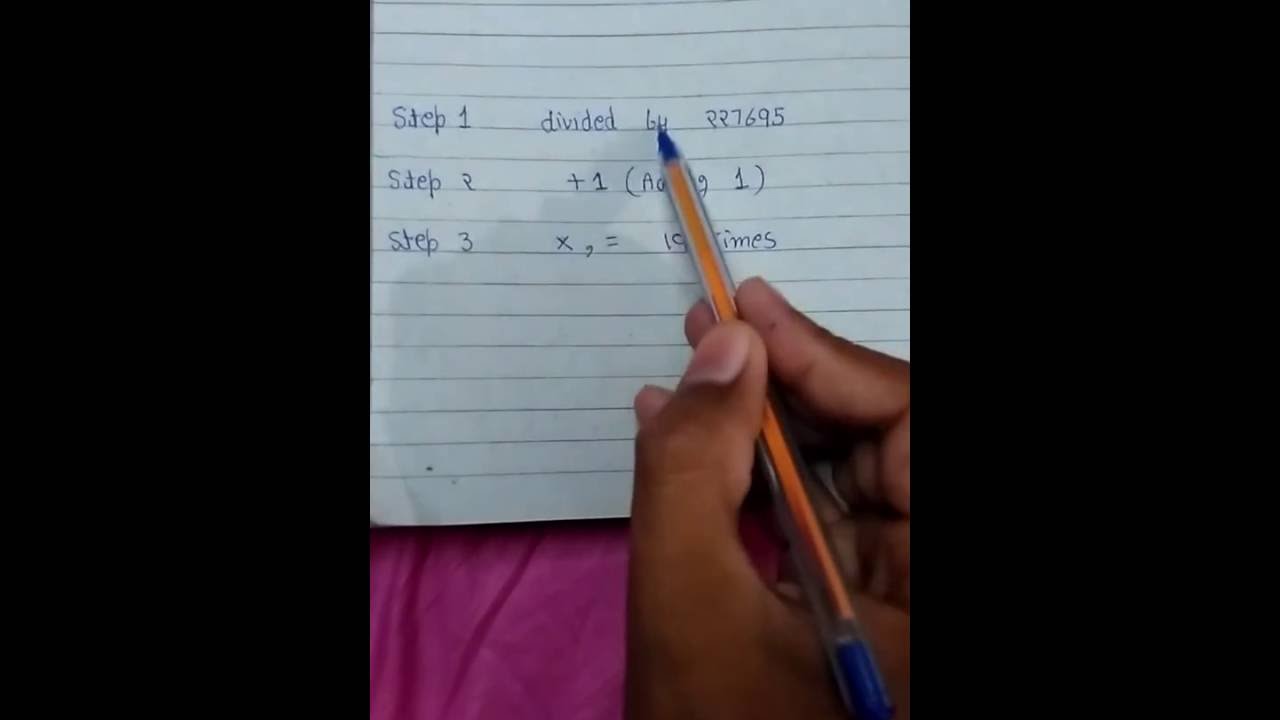 Step 1 divided by 227695
Step 2 +1 (Adding 1)
Step 3 x , = times